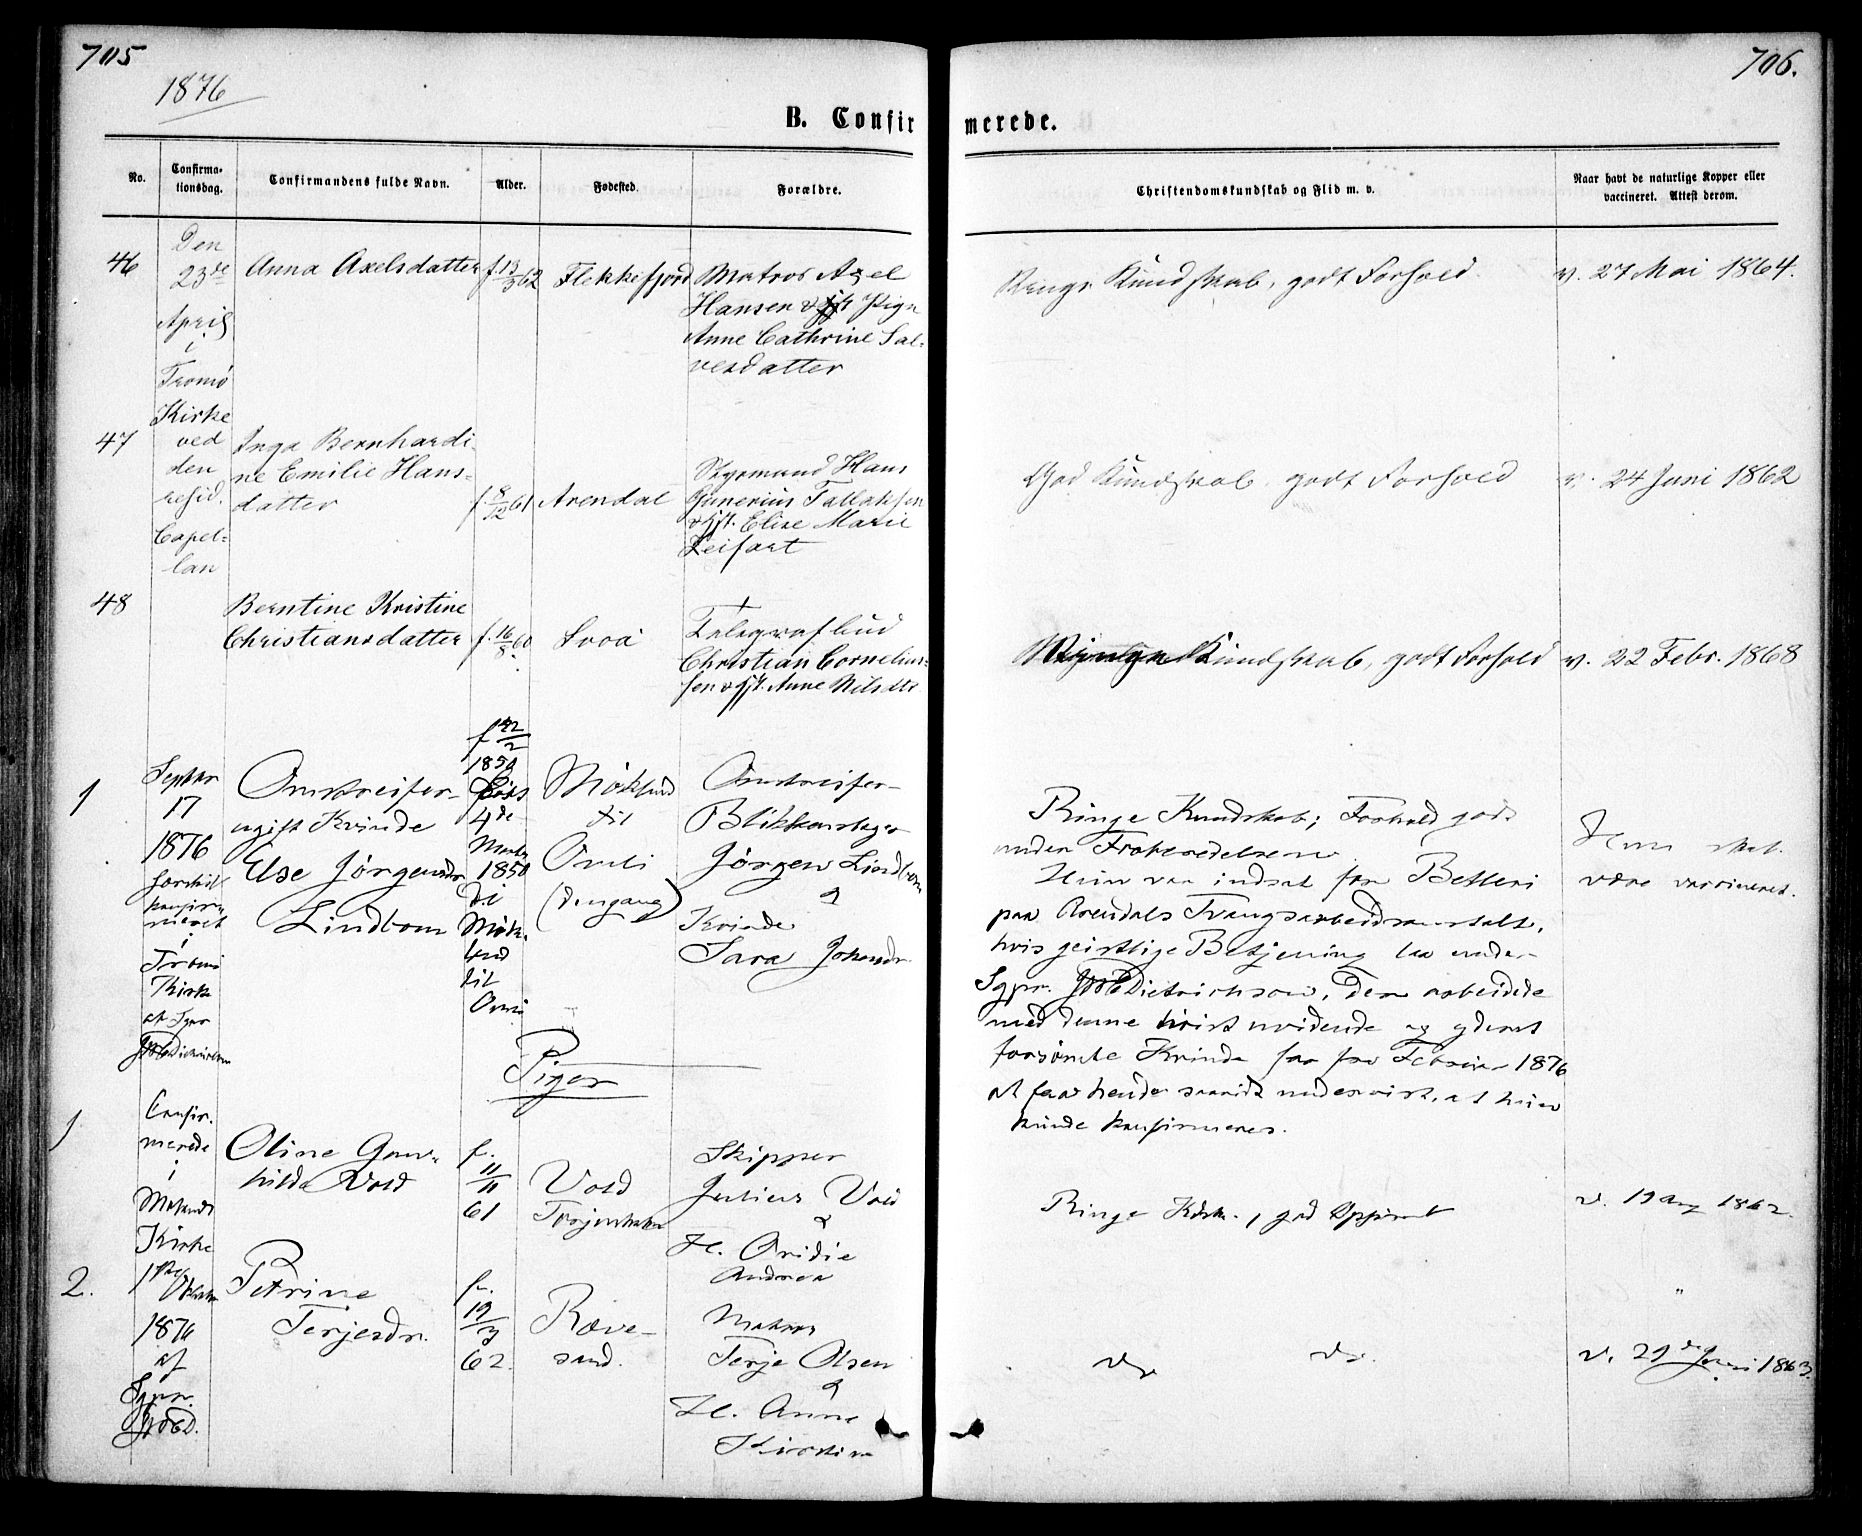 705
706.
1876
B. Confir
merede.
No.
Confirma-
tionsdag.
Confirmandens fulde Navn.
Alder.
Fødested.
Forældre.
Christendomskundskab og Flid m. v.
Naar havt de naturlige Kopper eller
vaccineret. Attest derom.
46
Den
23de
April
i
Tromø
Kirke
ved
den
resid.
Capel-
lan
Anna Axelsdatter
f. 13/3 62
Flekkefjord
Matros Axel
Hansen &
Anne Cathrine Sal-
vesdatter
Kundskab, godt Forhold
v. 27 Mai 1864.
47
Inga Bernhardi-
ne Emilie Hans-
datter
f. 8/12 61
Arendal
Styrmand Hans
Gunerius Tallaksen
& Hst. Elise Marie
Leifart
God Kundskab, godt Forhold
v. 24 Juni 1862
48
Berntine Kristine
Christiansdatter
f. 16/8 60
Telegrafbud
Christian Cornelius-
sen & Hst. Anne Nilsdtr
Kundskab, godt Forhold
v. 22 Febr. 1868
1
Septbr
17
1876
konfir-
meret
i
Tromø
Kirke
af Sgpr
Omstreifer-
ugift Kvinde
Else Jørgensdr
Lindbom
f 22/2
1850
4de
Marts
1850
til
Omli
til
Omli
(dengang)
Omstreifer-
Blikkenslager
Jørgen Lindbom
&
Kvinde
Sara Johansdr
Ringe Kundskab; Forhold godt
under Forberedelsen.
Hun var indsat for Betleri
paa Arendals Tvangsarbeidsanstalt,
hvis geistlige Betjening laa under
Sgpr. Dietrichson. Den arbeidede
med denne høist uvidende og yderst
forsømte Kvinde fra Februar 1876
at faa hende saavidt undervist, at hun
kunde konfirmeres.
Hun skal
være vaccineret.
Piger
1
Confir-
merede
i
Kirke
1ste
1876
af
Sgpr.
Oline Gun-
hilda Vold
f.
11/11
61
Vold
Skipper
Julius Vold
&
H. Ovidie
Andrea
Ringe Kdsk., god Opførsel
v. 19 Aug 1862.
2.
Petrine
Terjesdr.
f.
19/3
62.
Ræve-
sand.
Matros
Terje Olsen
&
H. Anne
Kirstine
"
Do
Do.
v. 29de Juni 1863.